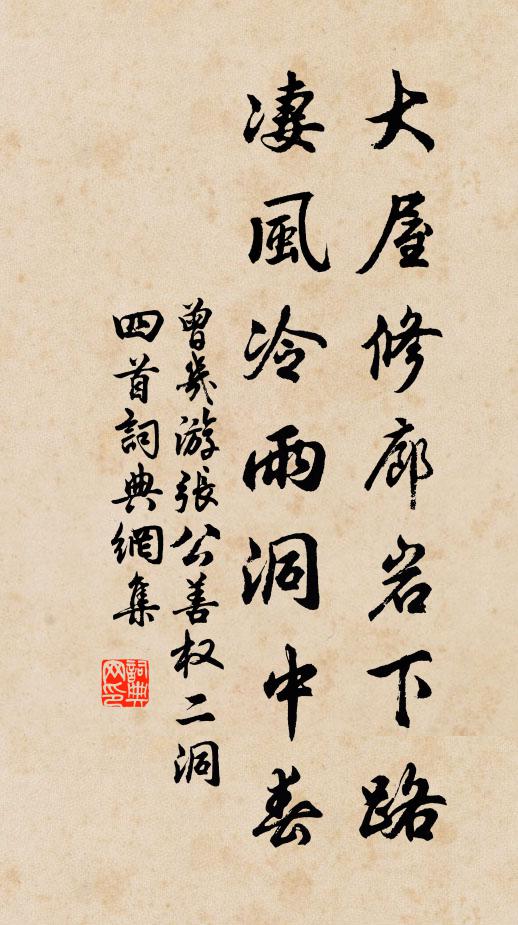 大屋修廊岩下路
凄風冷雨洞中春
曾幾游張公善权二洞
四首詞典網集
詞典
网印